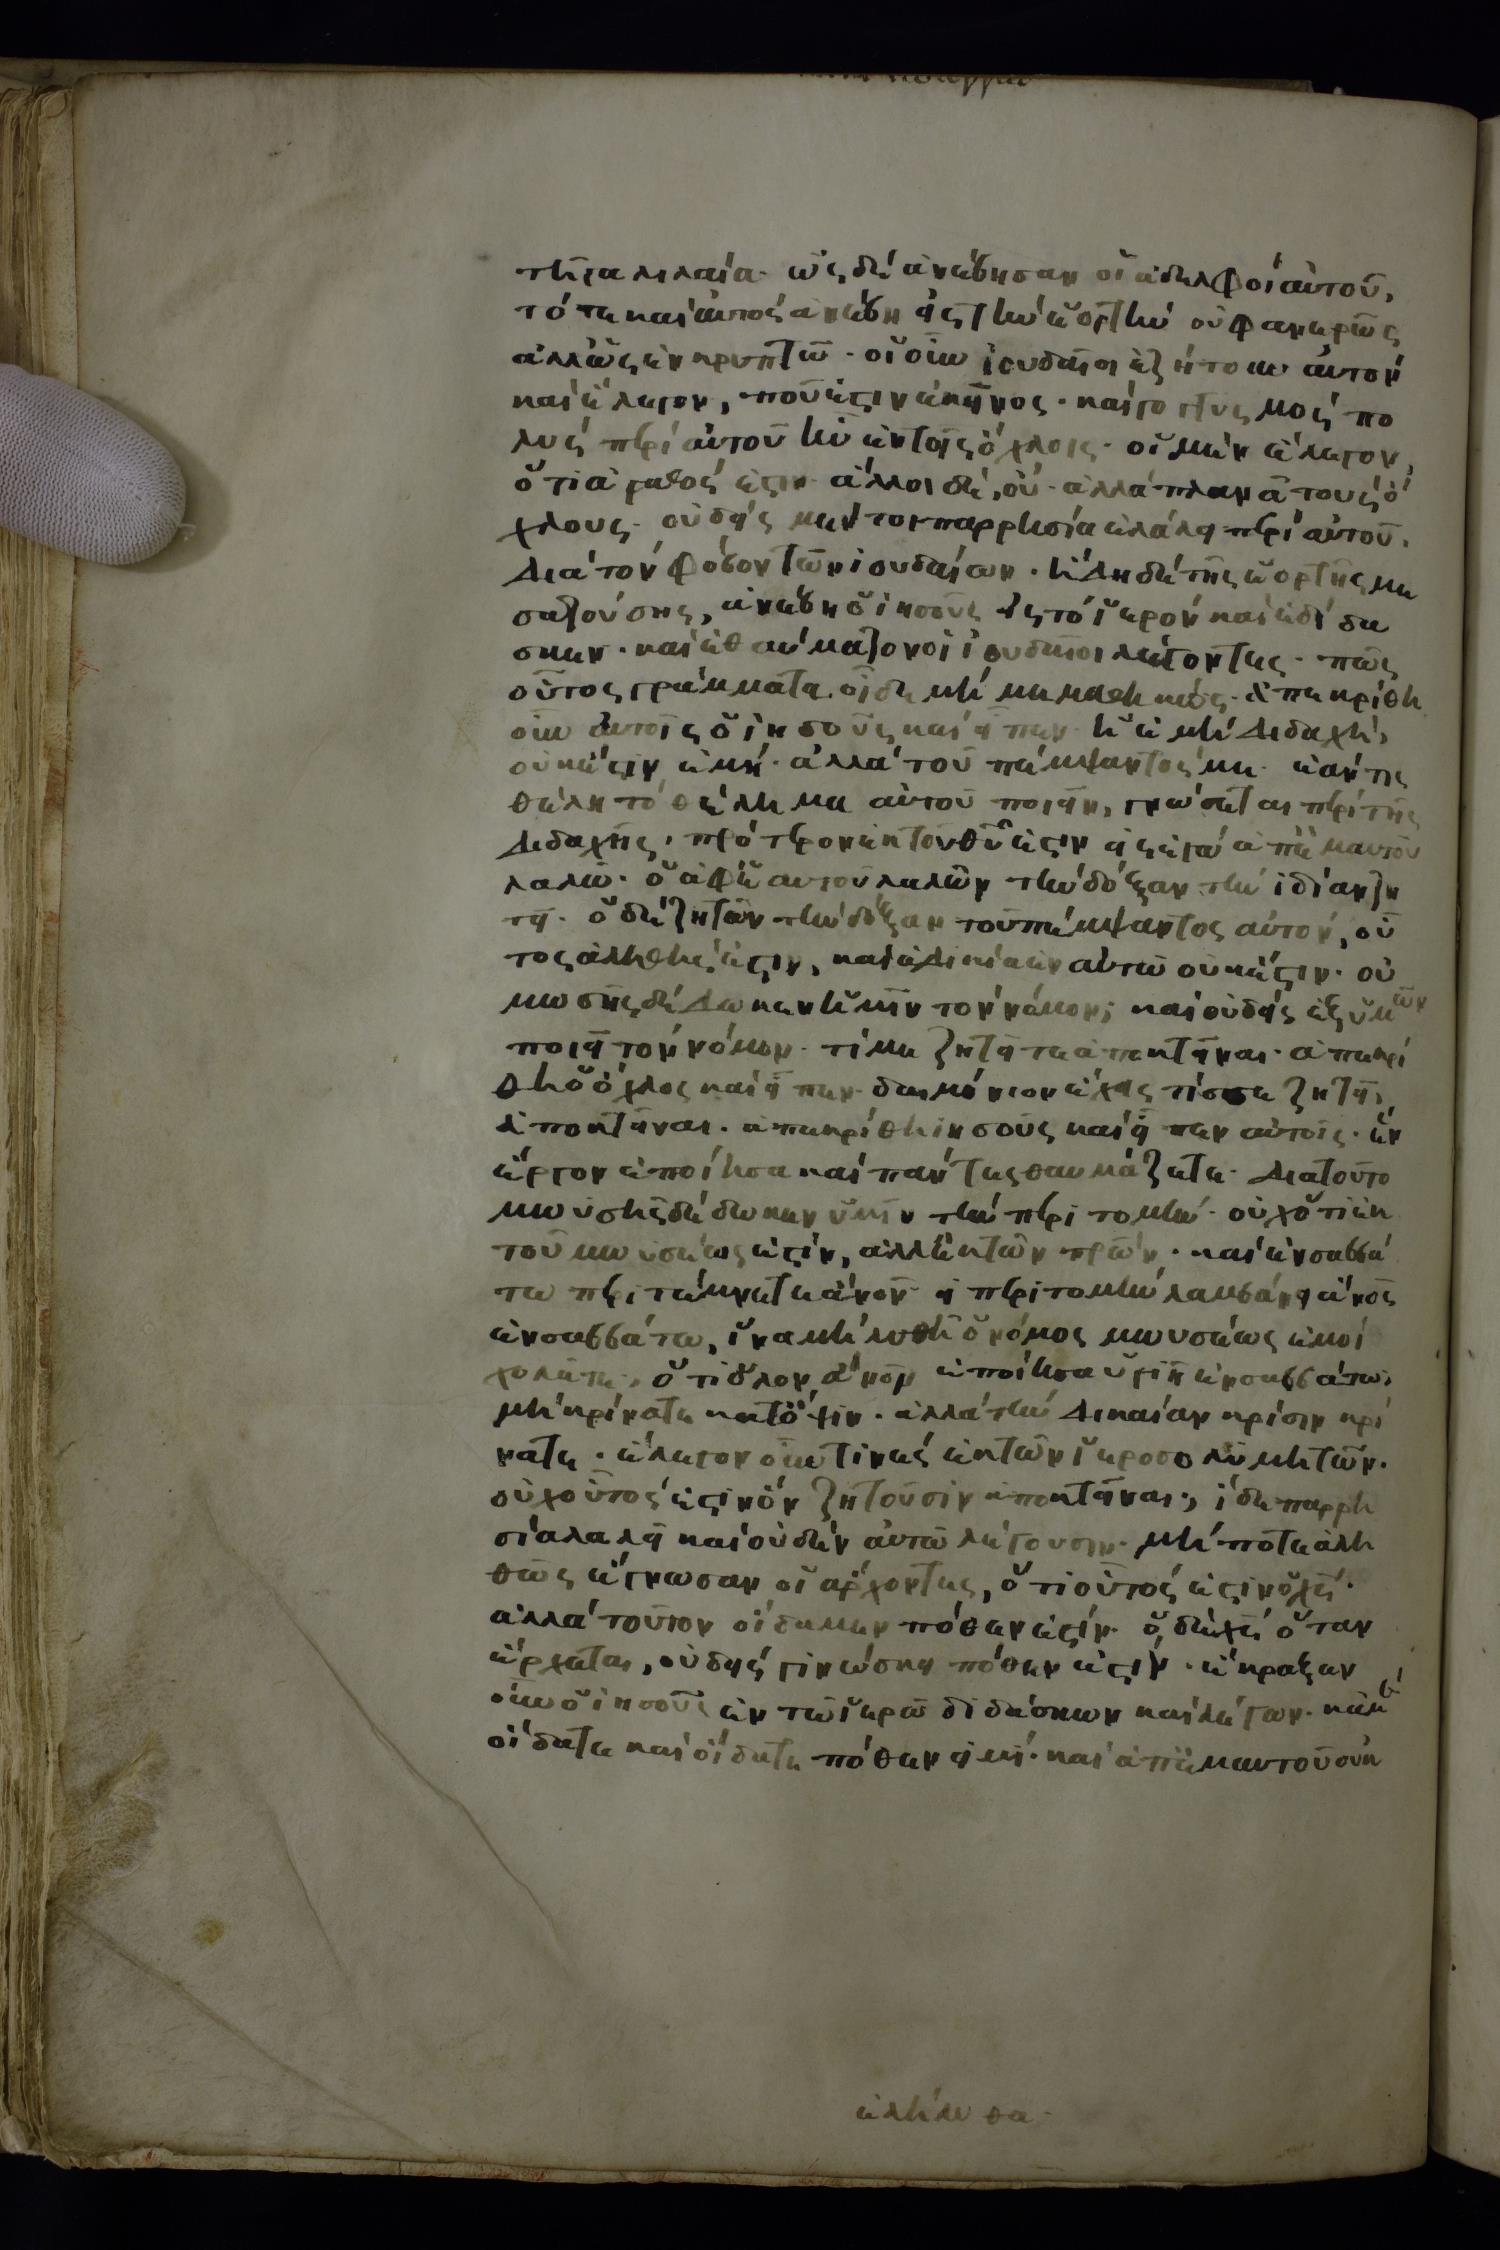 τῆ γαλιλαία· ὡς δὲ ἀνέβησαν οἱ ἀδελφοὶ αὐτοῦ,
τότε καὶ αὐτὸς ἀνέβη εἰς τὴν ἑορτὴν οὐ φανερῶς
ἀλλ' ὡς ἐν κρυπτῶ· οἱ οὖν ἰουδαῖοι ἐζήτουν αὐτὸν
καὶ ἔλεγον, ποῦ ἐστιν ἐκεῖνος· καὶ γογγυσμὸς πο
λὺς περὶ αὐτοῦ ἦν ἐν τοῖς ὄχλοις· οἱ μὲν ἔλεγον,
ὅτι ἀγαθός ἐστιν· ἄλλοι δὲ, οὔ· ἀλλὰ πλανᾶ τοὺς ὄ
χλους· οὐδεὶς μέντοι παρρησία ἐλάλει περὶ αὐτοῦ.
διὰ τὸν φόβον τῶν ἰουδαίων· ἤδη δὲ τῆς ἑορτῆς με
σαζούσης, ἀνέβη ὁ ἰησοῦς εἰς τὸ ἱερὸν καὶ ἐδίδα
σκεν· καὶ ἐθαύμαζον οἱ ἰουδαῖοι λέγοντες· πῶς
οὗτος γράμματα οἶδε μὴ μεμαθηκώς· ἀπεκρίθη
οὖν αὐτοῖς ὁ ἰησοῦς καὶ εἶπεν· ἡ ἐμὴ διδαχὴ,
οὐκ ἔστιν ἐμή· ἀλλὰ τοῦ πέμψαντός με· ἐάν τις
θέλη τὸ θέλημα αὐτοῦ ποιεῖν, γνώσεται περὶ τῆς
διδαχῆς, πρότερον ἐκ τοῦ θῦ ἐστιν ἢ ἐγὼ ἀπ' ἐμαυτοῦ
λαλῶ· ὁ ἀφ' ἑαυτοῦ λαλῶν τὴν δόξαν τὴν ἰδίαν ζη
τεῖ· ὁ δὲ ζητῶν τὴν δόξαν τοῦ πέμψαντος αὐτόν, οὗ
τος ἀληθής ἐστιν, καὶ ἀδικία ἐν αὐτῶ οὐκ ἔστιν· οὐ
μωσῆς δέδωκεν ἡμῖν τὸν νόμον; καὶ οὐδεὶς ἐξ ὑμῶν
ποιεῖ τὸν νόμον· τί με ζητεῖτε ἀποκτεῖναι· ἀπεκρί
θη ὁ ὄχλος καὶ εἶπεν· δαιμόνιον ἔχεις τίς σε ζητεῖ
ἀποκτεῖναι· ἀπεκρίθη ἰησοῦς καὶ εἶπεν αὐτοῖς· ἓν
ἔργον ἐποίησα καὶ πάντες θαυμάζετε· διατοῦτο
μωϋσῆς δέδωκεν ὑμῖν τὴν περιτομὴν· οὐχ ὅτι ἐκ
τοῦ μωϋσέως ἐστίν, ἀλλ' ἐκ τῶν πρῶν· καὶ ἐν σαββά
τω περιτέμνετε ἄνον· εἰ περιτομὴν λαμβάνει ἄνος
ἐν σαββάτω, ἵνα μὴ λυθῆ ὁ νόμος μωυσέως ἐμοὶ
χολᾶτε, ὅτι ὅλον ἄνον ἐποίησα ὑγιῆ ἐν σαββάτω,
μὴ κρίνατε κατ' ὄψιν· ἀλλὰ τὴν δικαίαν κρίσιν κρί
νατε· ἔλεγον οὖν τινὲς ἐκ τῶν ἱεροσολυμητῶν·
οὐχ οὗτός ἐστιν ὃν ζητοῦσιν ἀποκτεῖναι; ἴδε παρρη
σία λαλεῖ καὶ οὐδὲν αὐτῶ λέγουσιν· μήποτε ἀλη
θῶς ἔγνωσαν οἱ ἄρχοντες, ὅτι οὗτός ἐστιν ὁ χς·
ἀλλὰ τοῦτον οἴδαμεν πόθεν ἐστίν· ὁ δὲ χς ὅταν
ἔρχεται, οὐδεὶς γινώσκει πόθεν ἐστίν· ἔκραξεν
οὖν ὁ ἰησοῦς ἐν τῶ ἱερῶ διδάσκων καὶ λέγων· κἀμὲ
οἴδατε καὶ οἴδατε πόθεν εἰμί· καὶ ἀπ' ἐμαυτοῦ οὐκ
ἐλήλυθα·